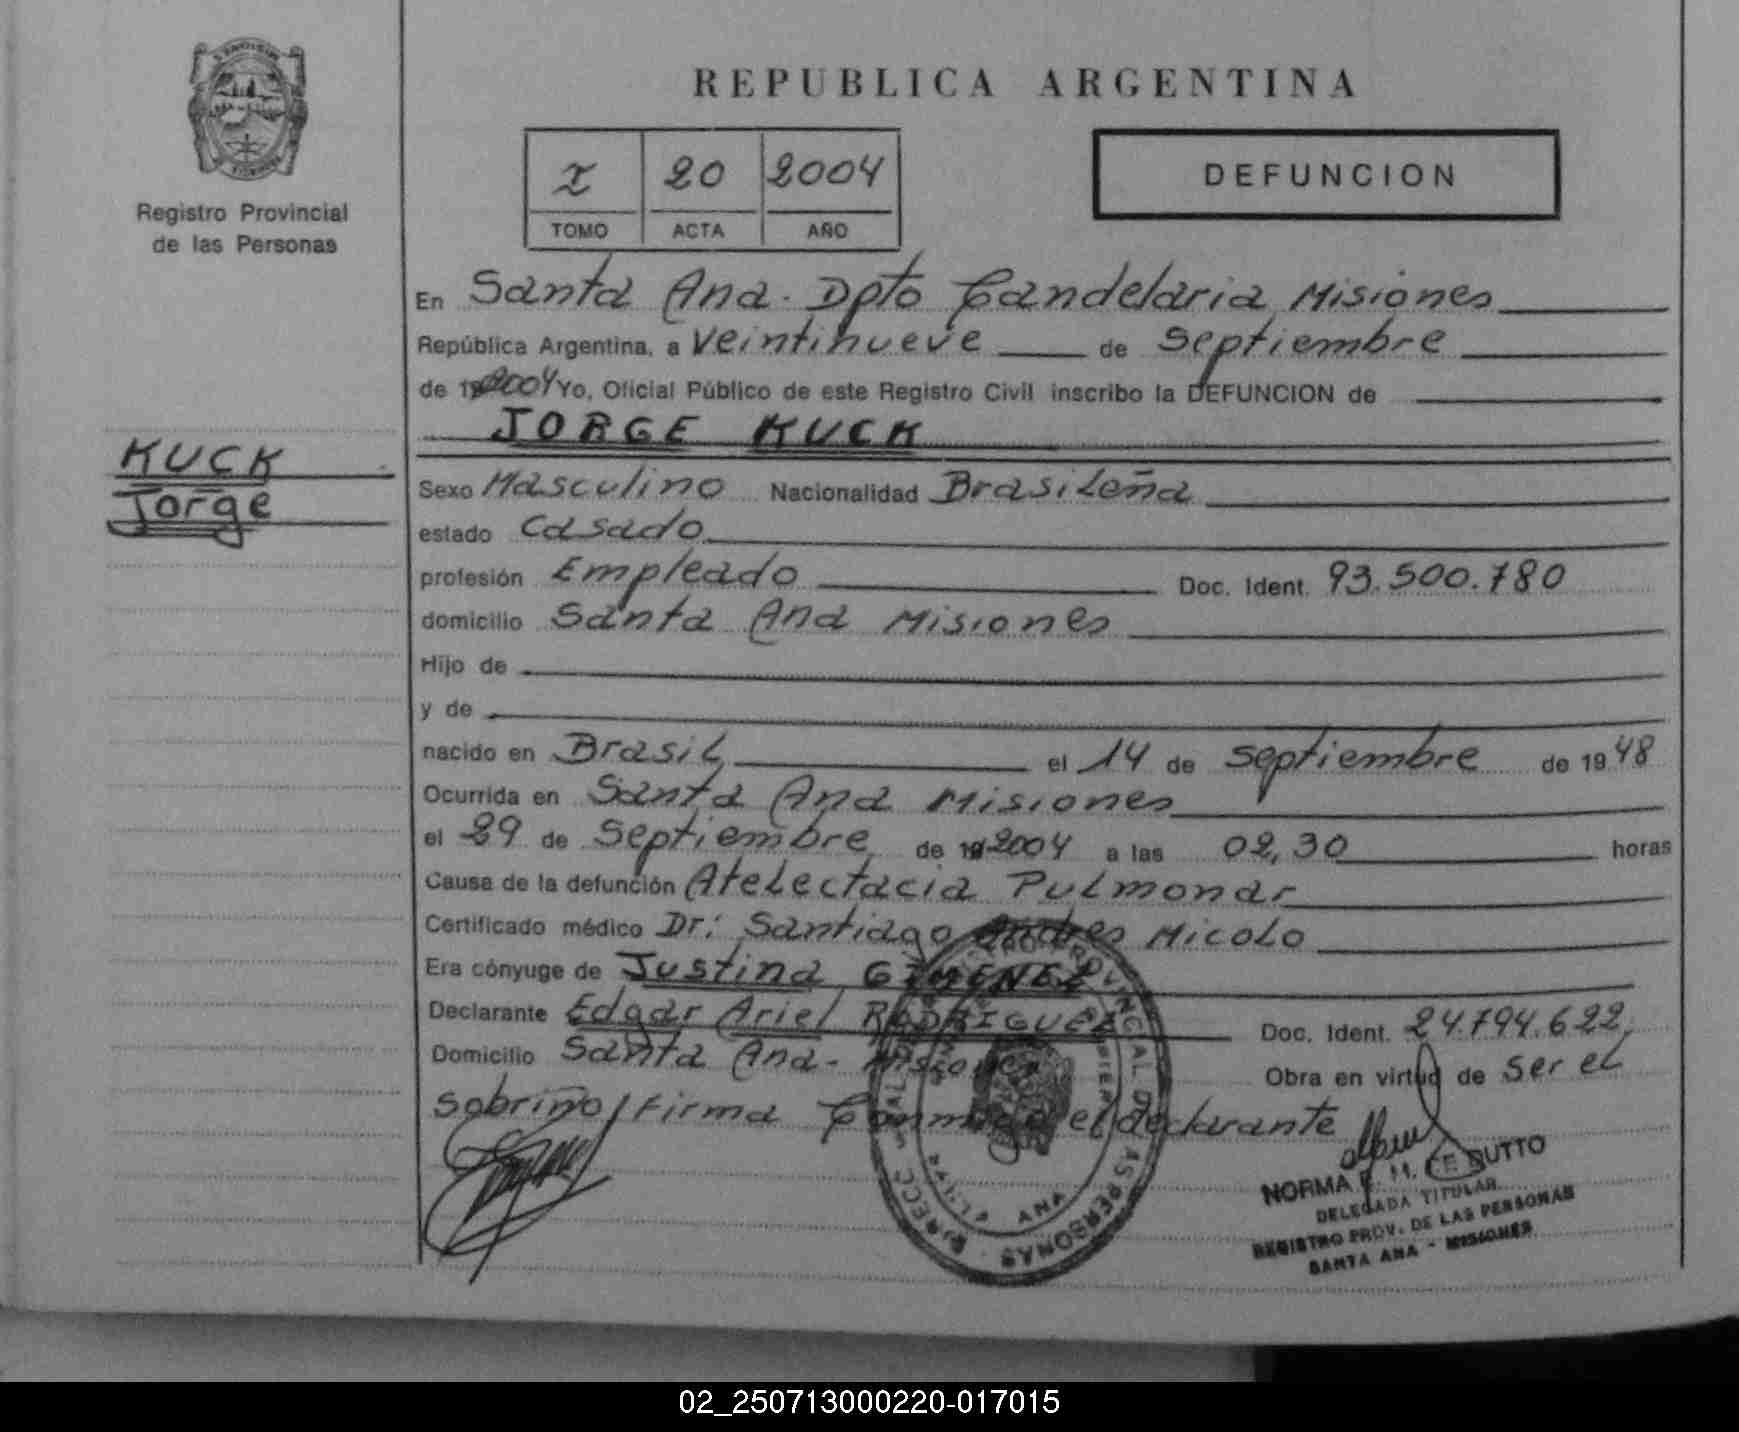 REPUBLICA ARGENTINA
I 20 2004
TOMO ACTA AÑO
DEFUNCION
Registro Provincial
de las Personas
KUCK
Jorge
En Santa Ana. Dpto Candelaria Misiones
República Argentina, a veintinueve de septiembre
de 192004 Yo, Oficial Público de este Registro Civil inscribo la DEFUNCION de
JORGE KUCK
Sexo Masculino Nacionalidad Brasileña
estado Casado
profesión Empleado Doc. Ident. 93.500.780
domicilio Santa Ana Misiones
Hijo de
y de
nacido en Brasil el 14 de septiembre de 1948
Ocurrida en Santa Ana Misiones
el 29 de septiembre de 19 2004 a las 02,30 horas
Causa de la defunción Atelectacia Pulmonar
Certificado médico Dr: Santiago Andres Micolo
Era cónyuge de Justina GIMENEZ
Declarante Edgar Ariel RODRIGUEZ Doc. Ident. 24.794.622
Domicilio Santa Ana - Misiones Obra en virtud de ser el
sobrino/ Firma Conmigo el declarante
NORMA
DELEGADA TITULAR
REGISTRO PROV. DE LAS PERSONAS
SANTA ANA - MISIONES
02_250713000220-017015